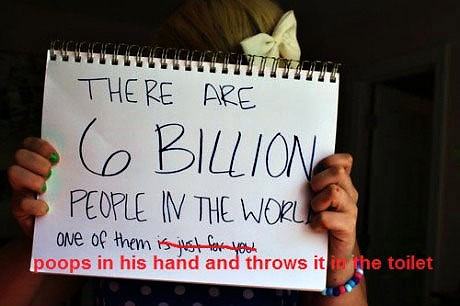 THERE ARE
6 BILLION
PEOPLE IN THE WORL
one of them is just for you
poops in his hand and throws it in the toilet